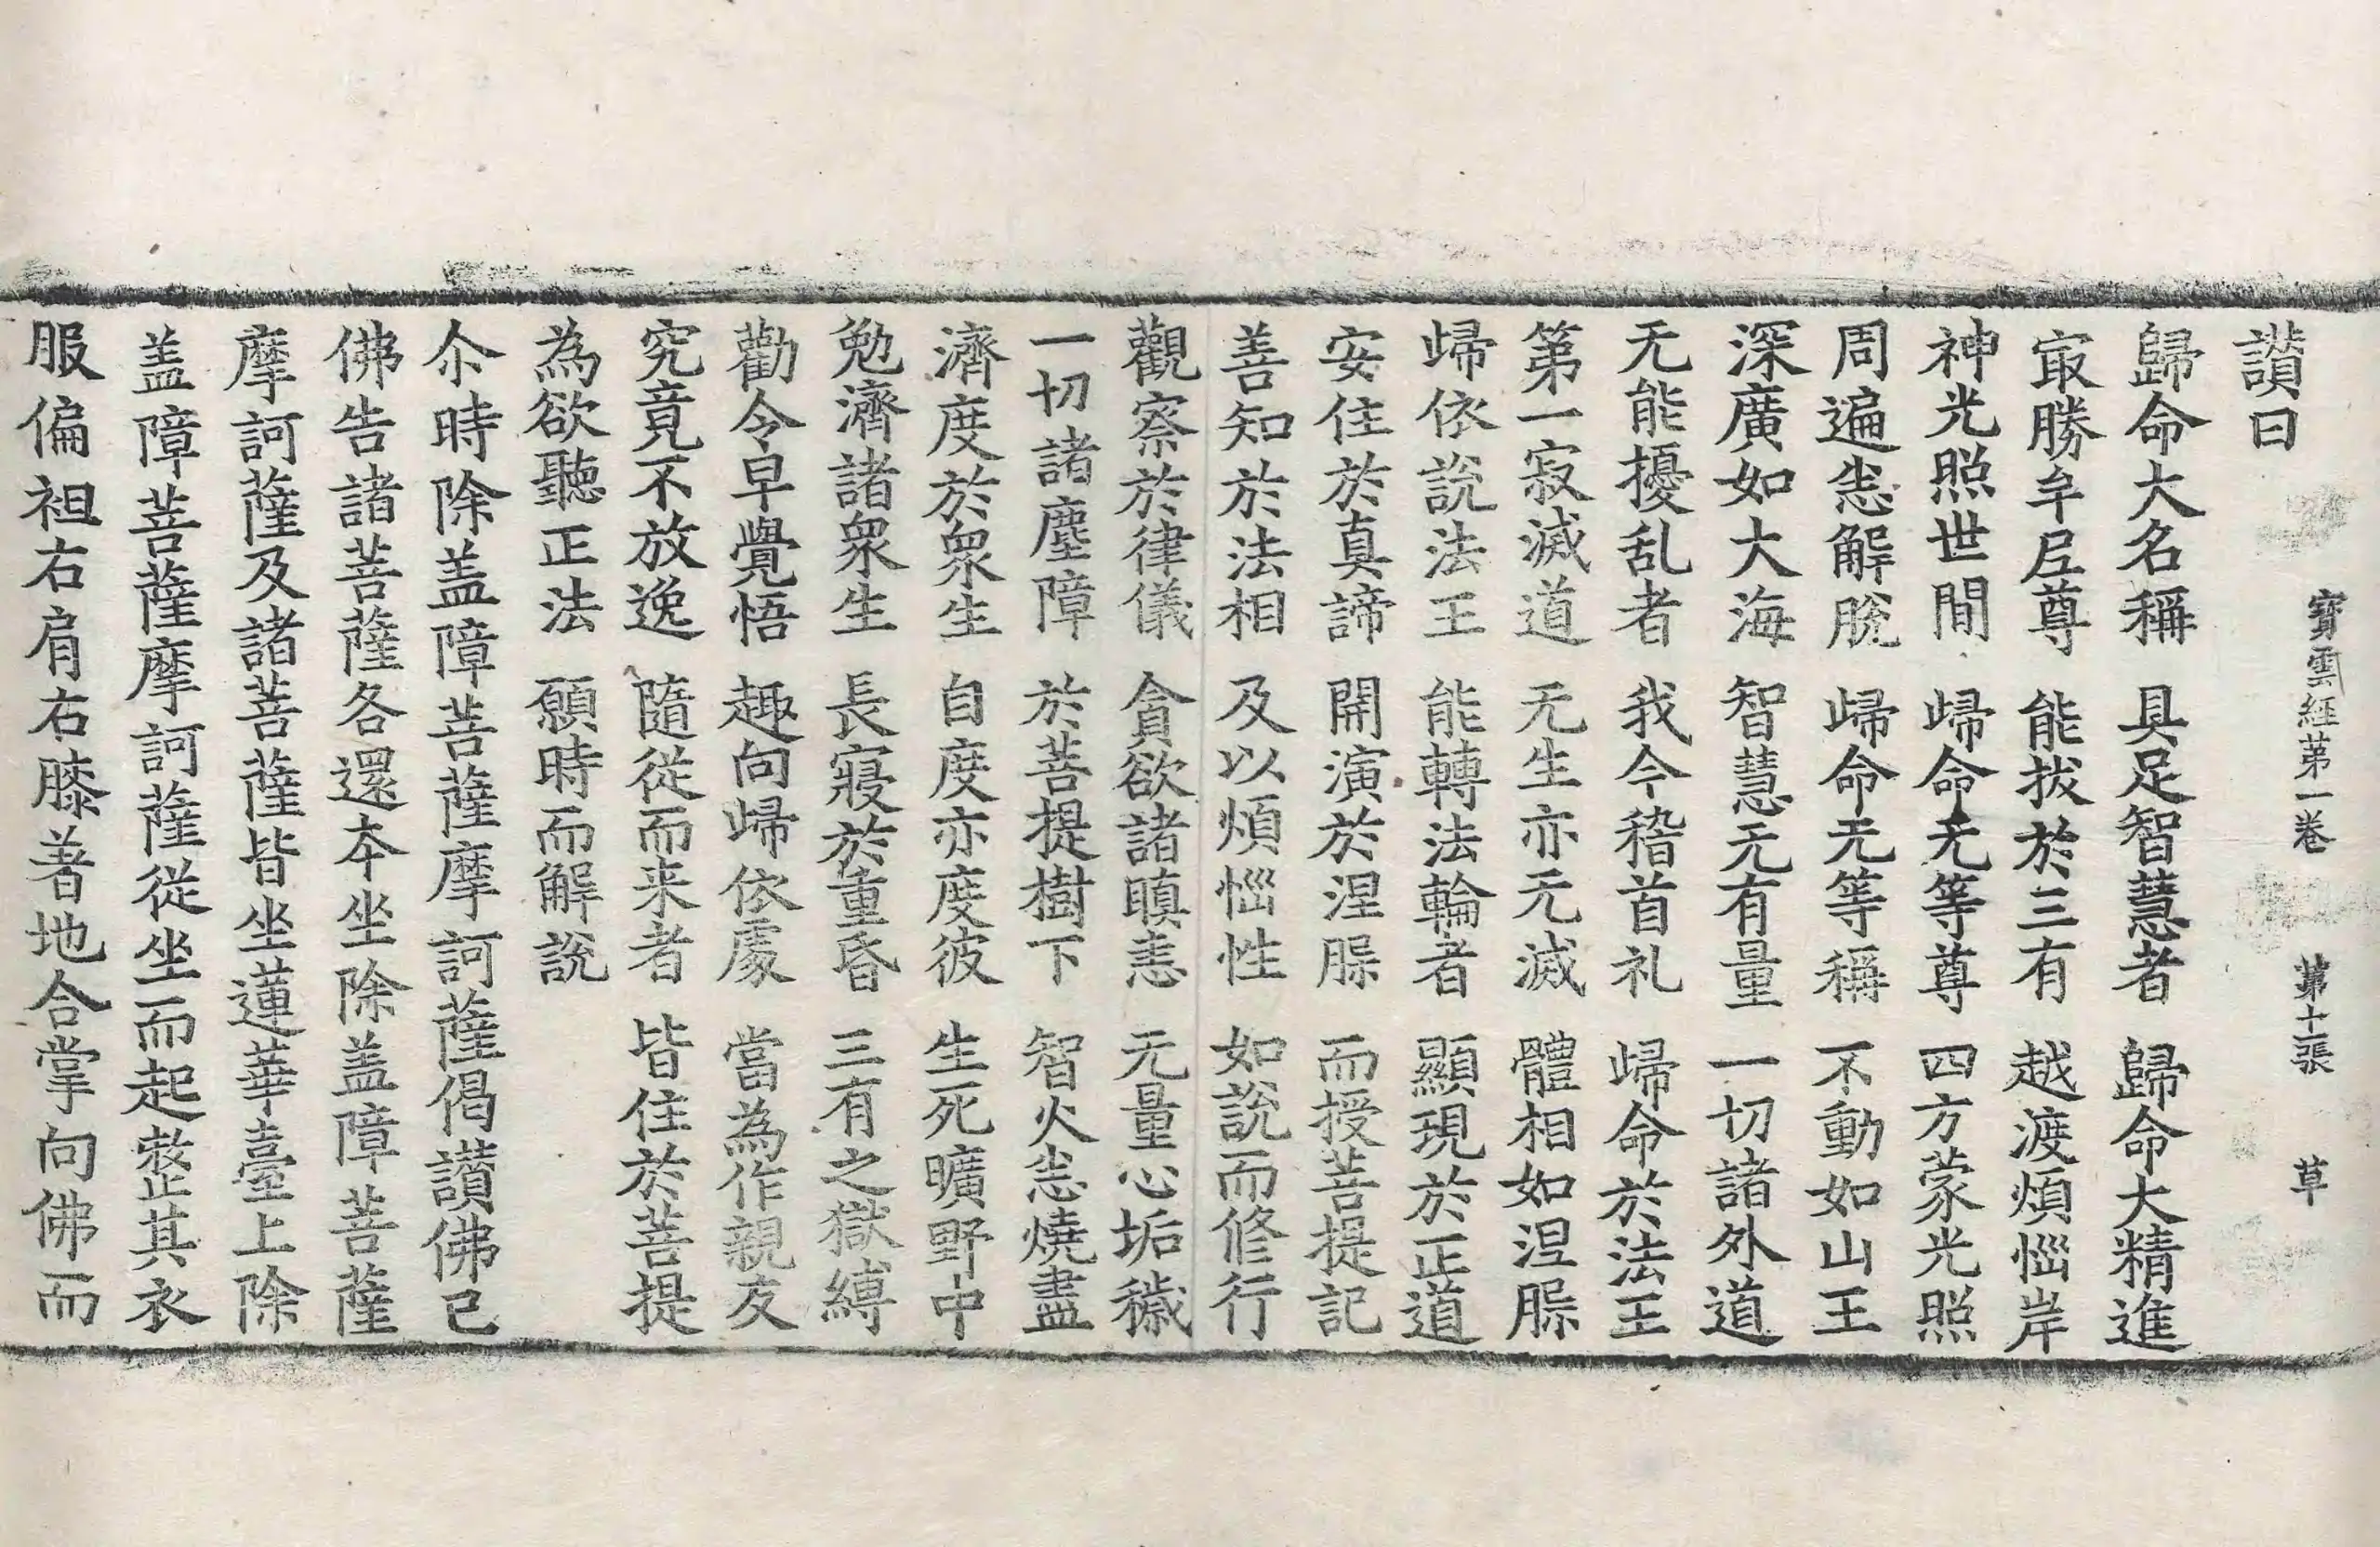 讃曰
寳雲經第一卷 第十二張 草
歸命大名稱 具足智慧者 歸命大精進
㝡勝牟𡰱尊 能拔於三有 越渡煩惱岸
神光照世間 㱕命无等尊 四方蒙光照
周遍悉解脫 㱕命无等稱 不動如山王
深廣如大海 智慧无有量 一切諸外道
无能擾乱者 我今稽首礼 㱕命於法王
第一寂滅道 无生亦无滅 體相如涅槃
㱕依說法王 能轉法輪者 顯現於正道
安住於真諦 開演於涅槃 而授菩提記
善知於法相 及以煩惱性 如說而修行
觀察於律儀 貪欲諸瞋恚 无量心垢穢
一切諸塵障 於菩提樹下 智火悉燒盡
濟度於衆生 自度亦度彼 生死曠野中
勉濟諸衆生 長寢於重昏 三有之獄縛
勸令早覺悟 趣向㱕依處 當為作親友
究竟不放逸 隨從而来者 皆住於菩提
為欲聽正法 願時而解說
尒時除盖障菩薩摩訶薩偈讃佛已
佛告諸菩薩各還夲坐除盖障菩薩
摩訶薩及諸菩薩皆坐蓮華臺上除
盖障菩薩摩訶薩從坐而起整其衣
服偏袒右肩右膝著地合掌向佛而